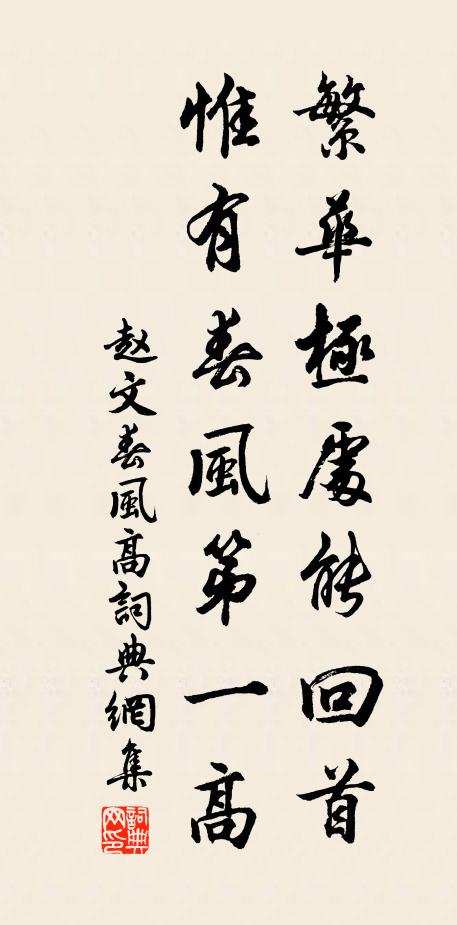 繁華極處能回首
惟有春風第一高
赵文春風高詞典網集
詞典网印